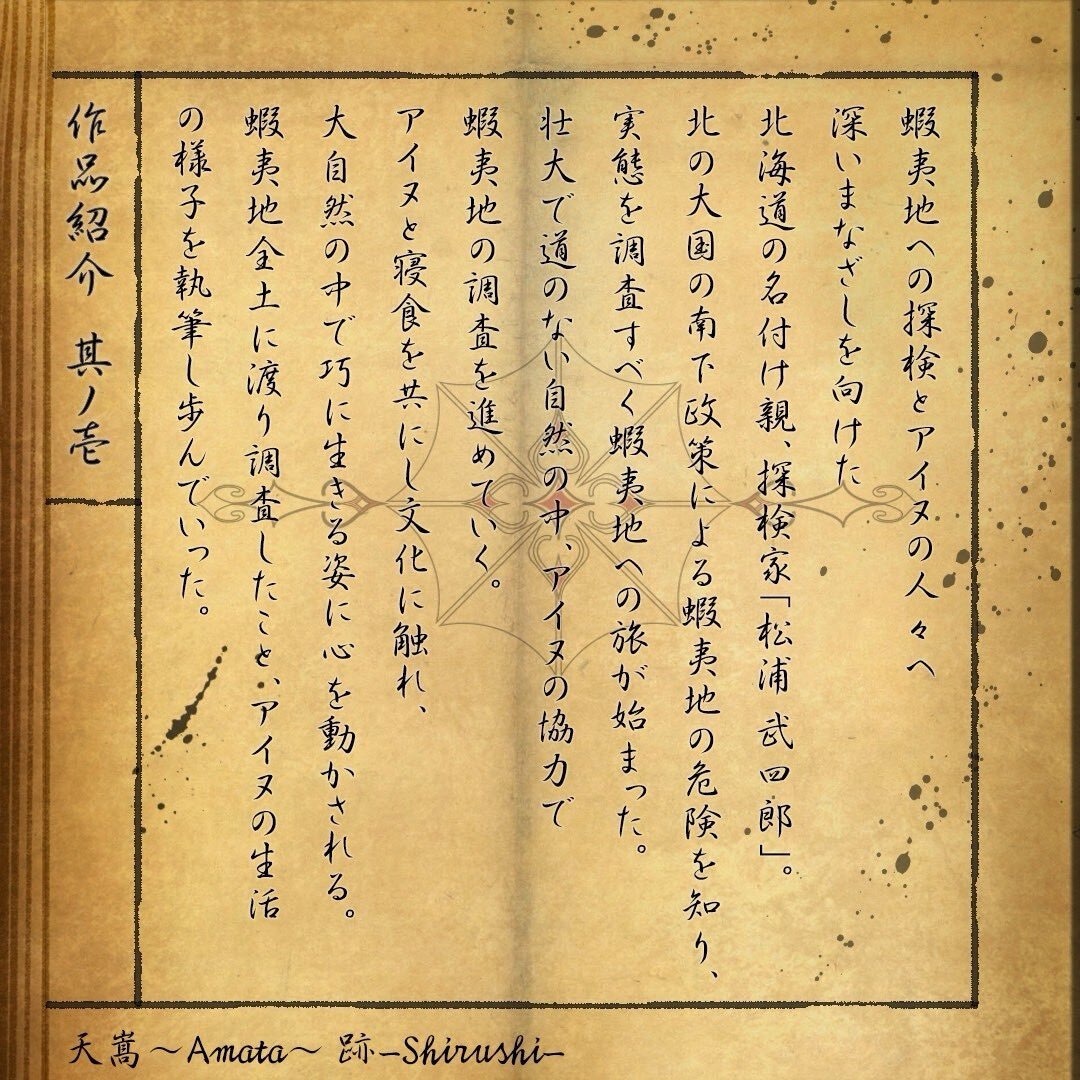 蝦夷地への探検とアイヌの人々へ
深いまなざしを向けた
北海道の名付け親、探検家「松浦 武四郎」。
北の大国の南下政策による蝦夷地の危険を知り、
実態を調査すべく蝦夷地への旅が始まった。
壮大で道のない自然の中、アイヌの協力で
蝦夷地の調査を進めていく。
アイヌと寝食を共にし文化に触れ、
大自然の中で巧に生きる姿に心を動かされる。
蝦夷地全土に渡り調査したこと、アイヌの生活
の様子を執筆し歩んでいった。
作品紹介 其ノ壱
天嵩～Amata～ 跡-Shirushi-